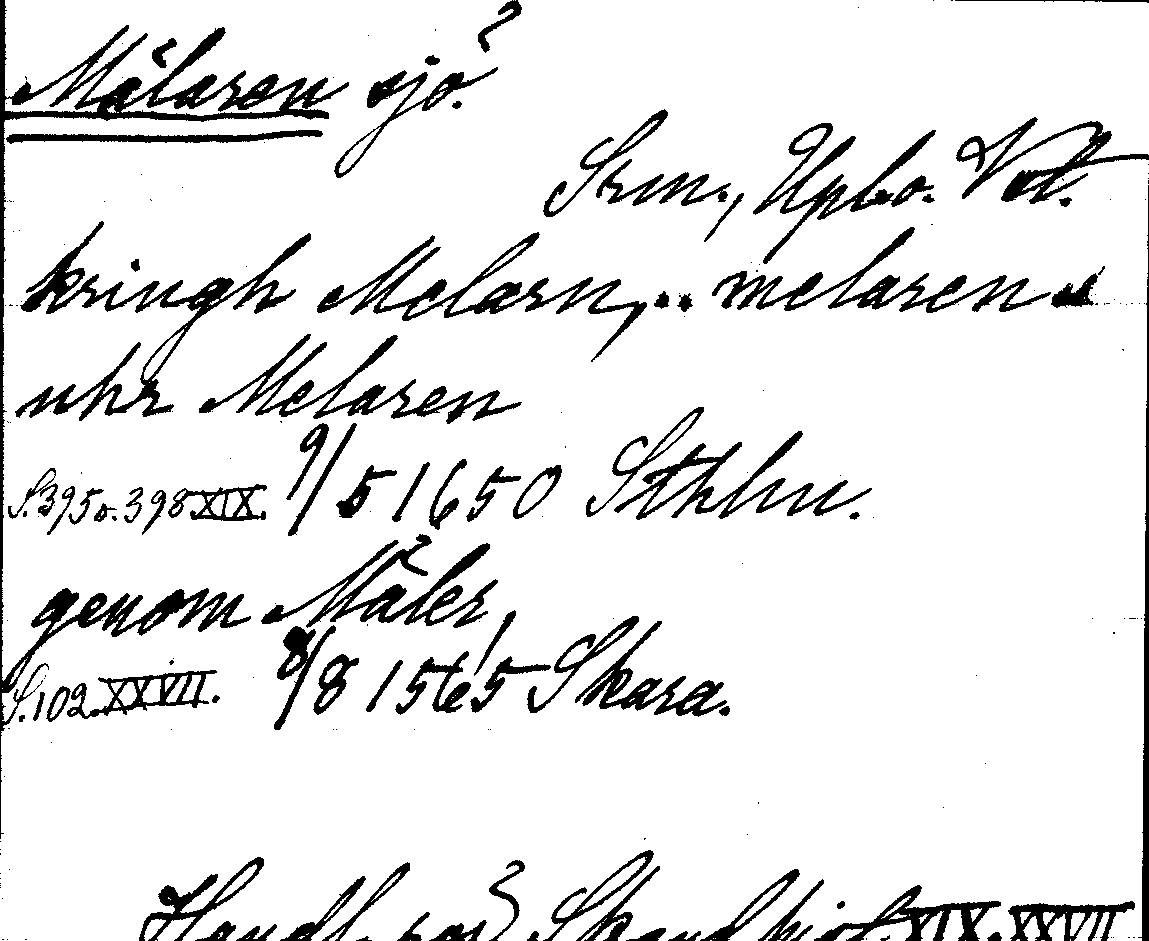 Mälaren sjö
Srm., Uplo. Vstl.
kringh Melarn,.. melaren
uhr Melaren
S. 395 o. 398 XIX. 9/5 1650 Sthlm.
genom Mäler,
S. 102. XXVII. 8/8 1565 Skara.
Handl. rör Skand. hist. XIX. XXVII